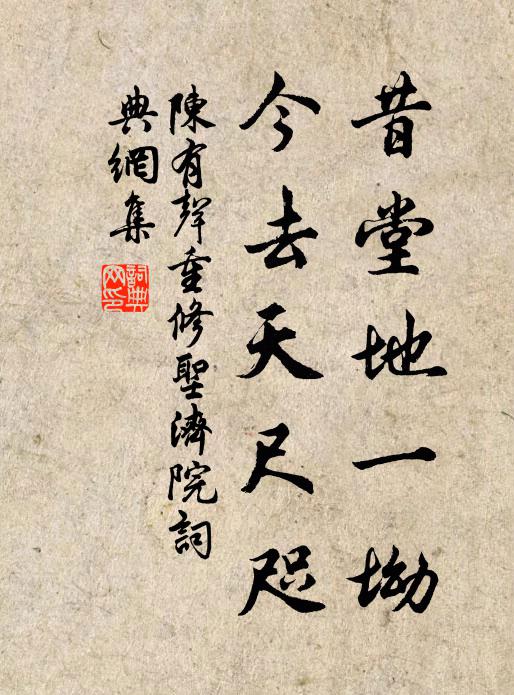 昔堂地一坳
今去天尺咫
陳有聲重修聖濟院詞
典網集
詞典網印